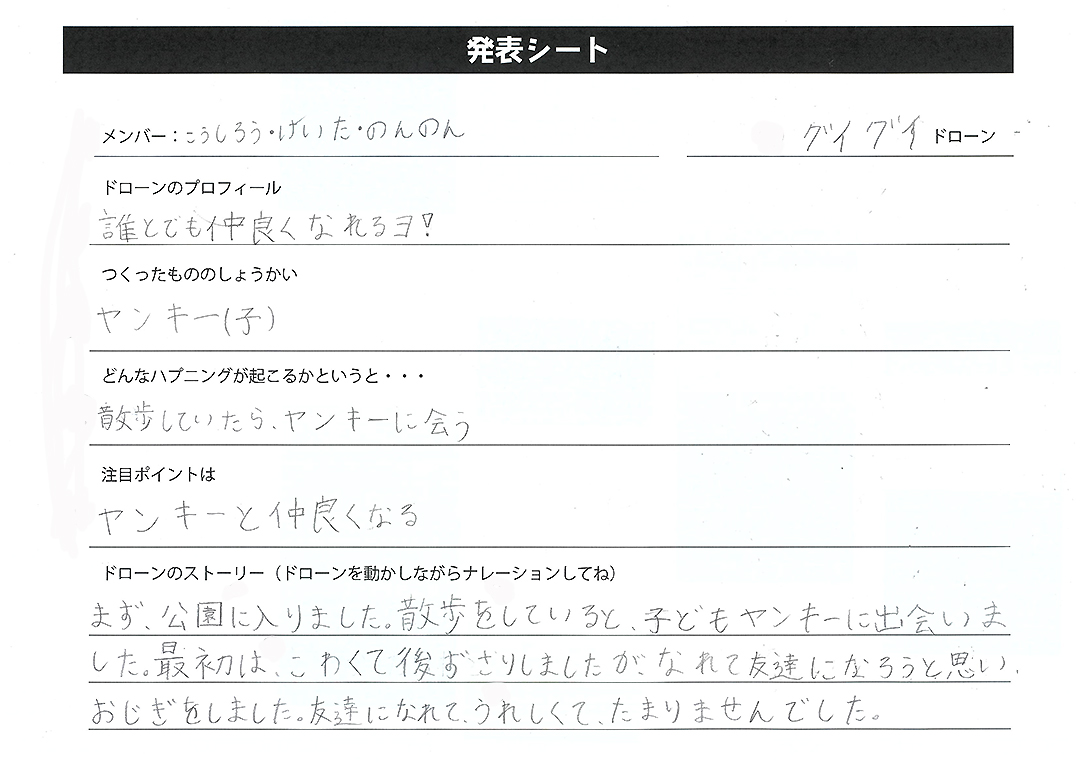 発表シート
メンバー：こうしろう・けいた・のんのん
グイグイ ドローン
ドローンのプロフィール
誰とでも仲良くなれるヨ!
つくったもののしょうかい
ヤンキー(子)
どんなハプニングが起こるかというと・・・
散歩していたら、ヤンキーに会う
注目ポイントは
ヤンキーと仲良くなる
ドローンのストーリー（ドローンを動かしながらナレーションしてね）
まず、公園に入りました。散歩をしていると、子どもヤンキーに出会いま
した。最初は、こわくて後ずさりしましたが、なれて友達になろうと思い、
おじぎをしました。友達になれて、うれしくて、たまりませんでした。